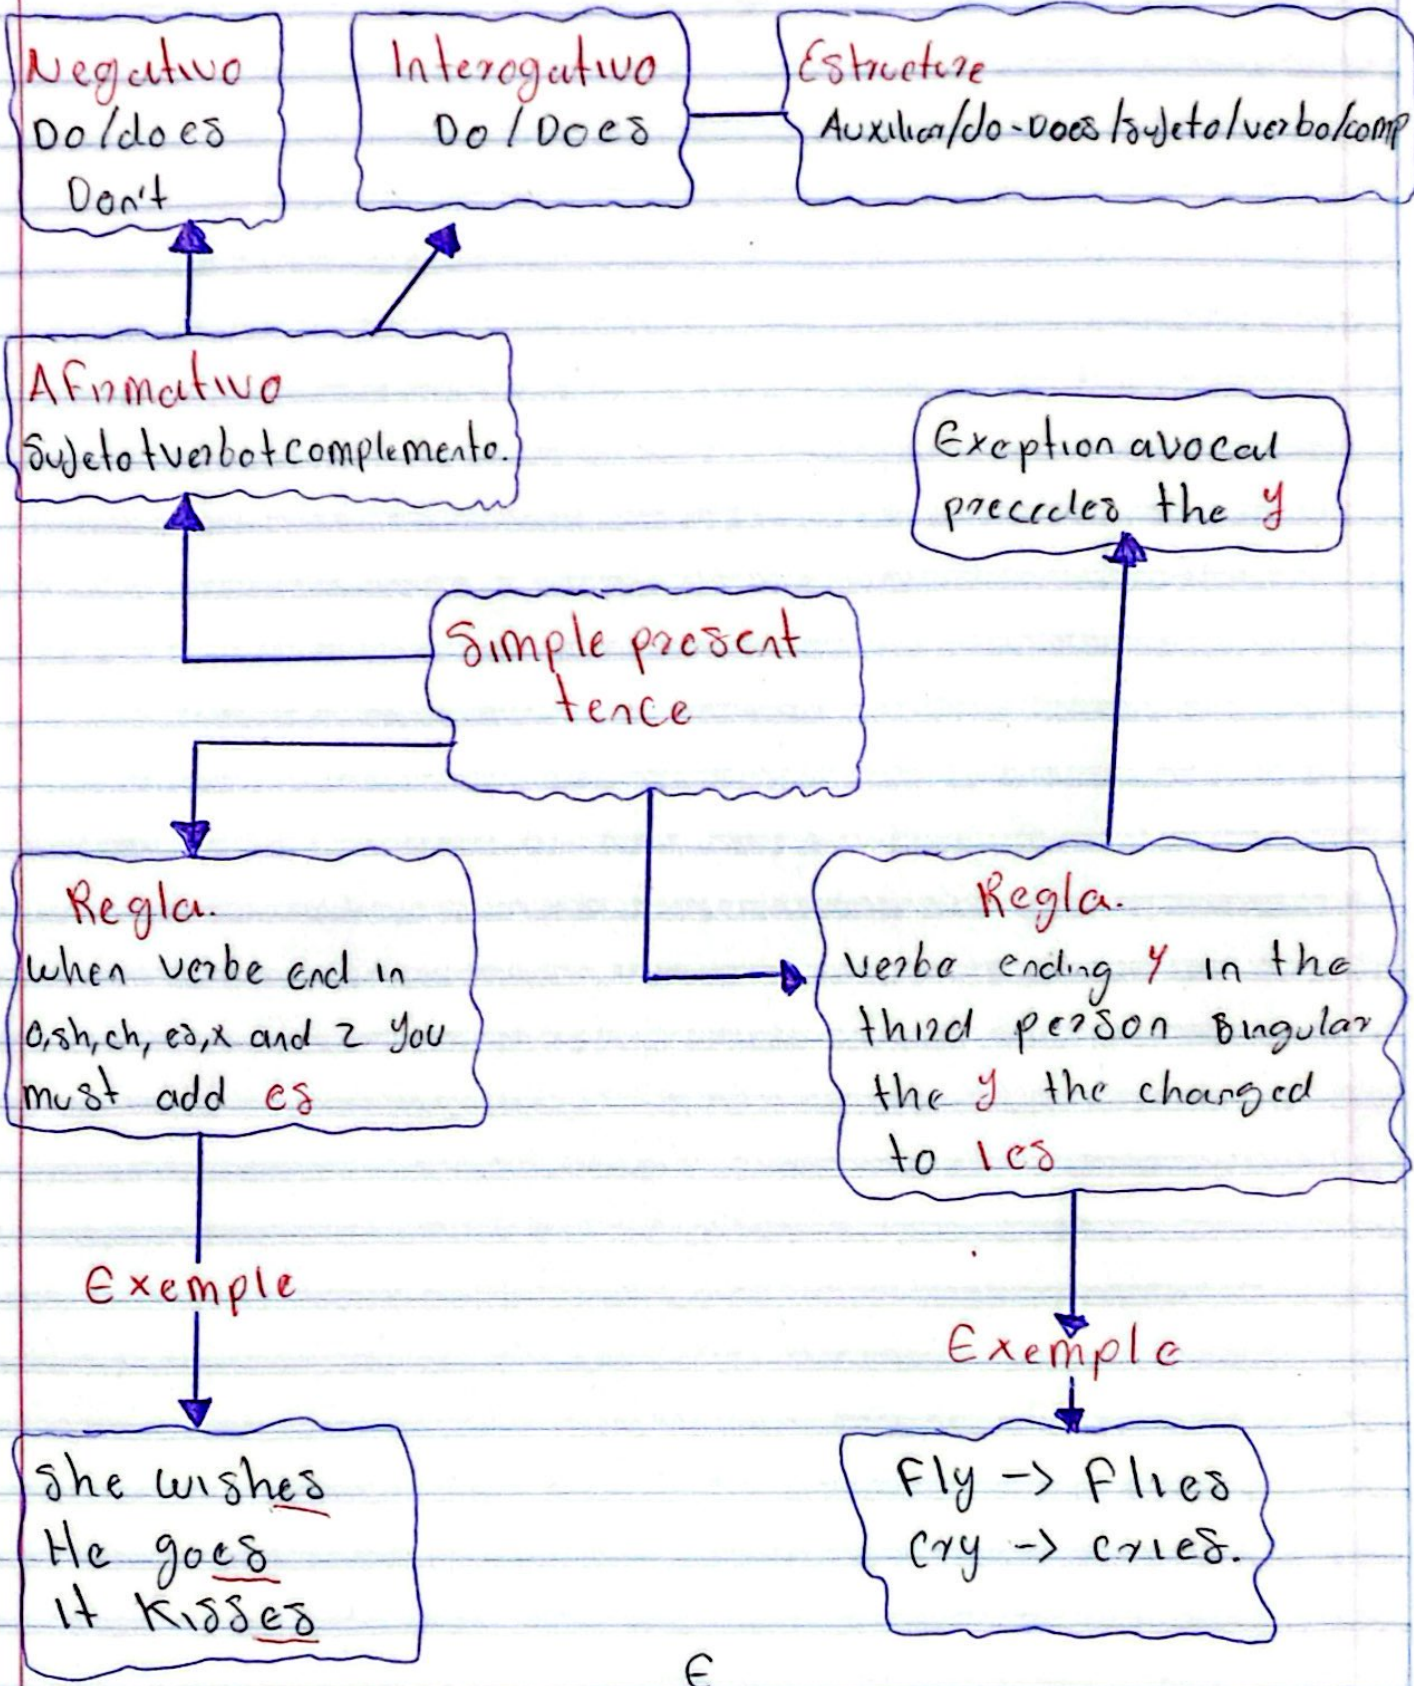 Negativo
Do/does
Don't
Interogativo
Do / Does
Estructure
Auxiliar/do-Does/sujeto/verbo/comp
Afirmativo
Sujeto+verbo+complemento.
Exeption a vocal
precedes the y
Simple present
tence
Regla.
when verbe end in
o,sh,ch, es,x and z you
must add es
Regla.
verbe ending y in the
third person singular
the y the changed
to ies
Exemple
Exemple
She wishes
He goes
It kisses
Fly -> Flies
Cry -> cries.
E